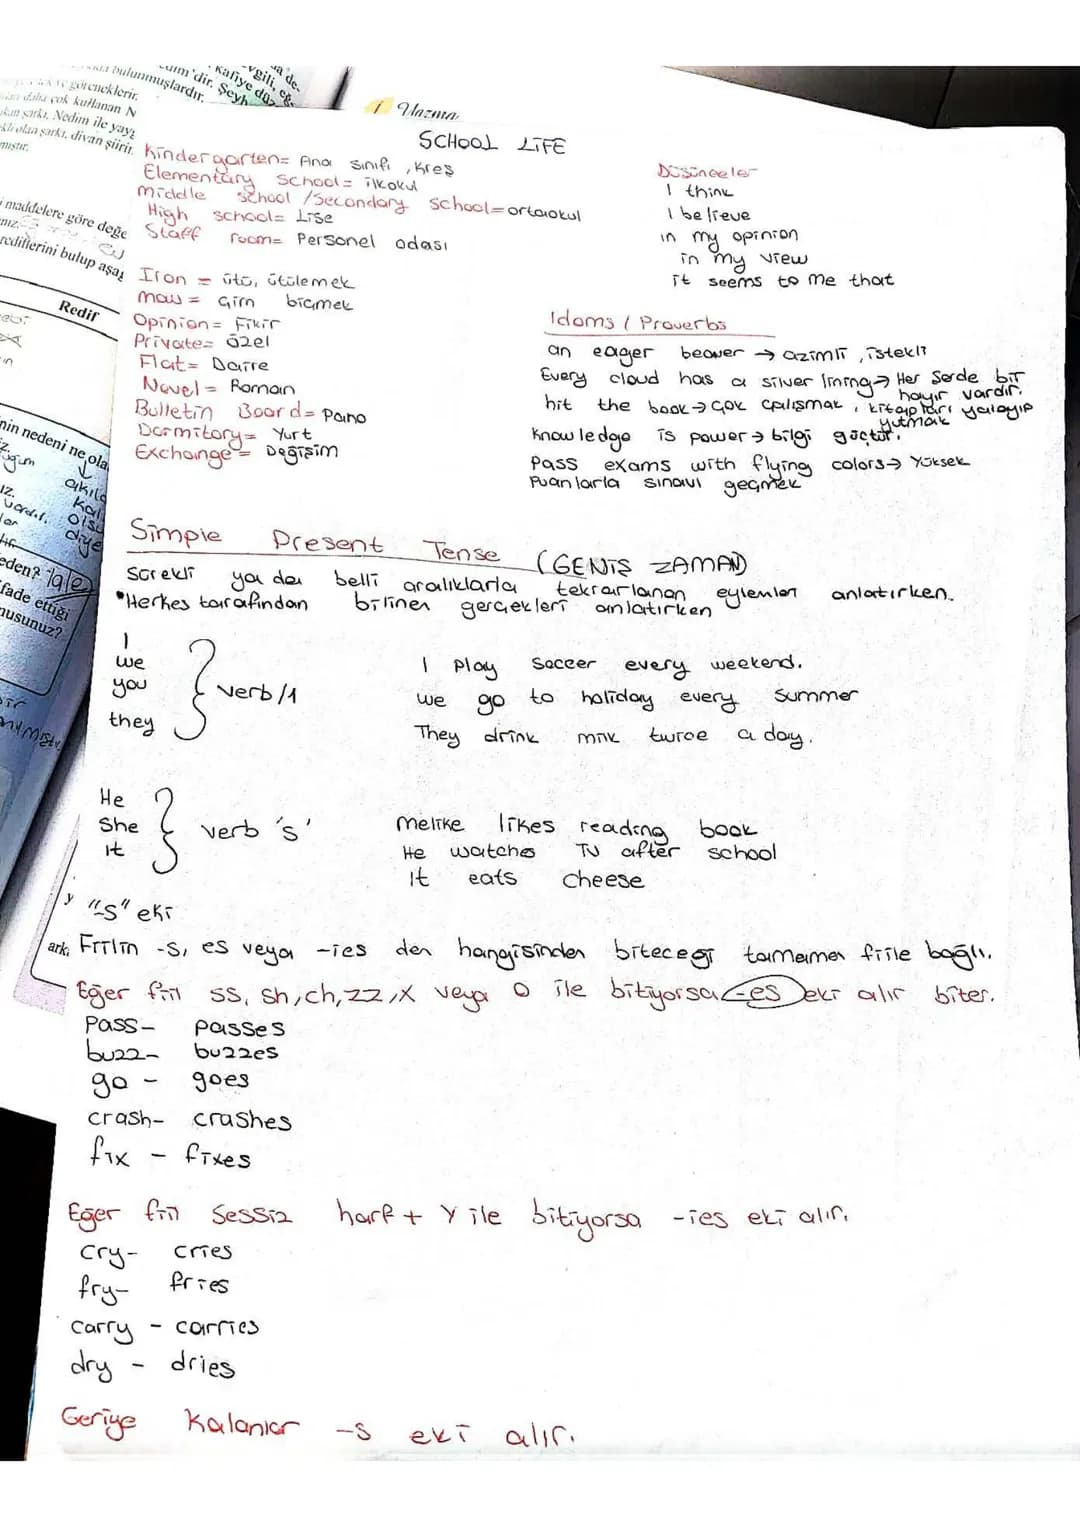 kafiye düz
bulunmuşlardır.
göreneklerir.
daha çok kullanan N
şarkı, Nedim ile yayg
olan şarkı, divan şiirin
mıştır.
maddelere göre değe
rediflerini bulup aşağ
Redif
nin nedeni ne ola
eden? lale
ifade ettiği
musunuz?
Yazma
SCHOOL LİFE
Kindergarten= Ana sınıfı, kreş
Elementary School= ilkokul
middle school /Secondary School=ortaokul
High school= Lise
Staff room= Personel odası
Düşünceler
I think
I believe
in my opinion
in my view
it seems to me that
Iron = ütü, ütülemek
mow = Çim biçmek
Opinion= Fikir
Private= özel
Flat= Daire
Novel= Roman
Bulletin Board= Pano
Dormitory= Yurt
Exchange= Değişim
Idoms / Proverbs
an eager beaver → azimli, istekli
Every cloud has a silver lining→ Her Şerde bir
hayır vardır.
hit the book→ çok çalışmak, kitapları yalayıp
yutmak
Knowledge is power→ bilgi güçtür.
Pass exams with flying colors→ Yüksek
Puanlarla sınavı geçmek
Simple Present Tense (GENİŞ ZAMAN)
Sürekli ya da belli aralıklarla tekrarlanan eylemler anlatırken.
•Herkes tarafından bilinen gerçekleri anlatırken
I
we
you
they
verb/1
I play soccer every weekend.
we go to holiday every summer
They drink milk twice a day.
He
She
it
verb 's'
melike likes reading book
He watches TV after school
It eats cheese
y "-s" eki
ark. Fiilin -s, es veya -ies den hangisinden biteceği tamamen fiile bağlı.
Eğer fiil ss, sh, ch, zz, x veya o ile bitiyorsa -es eki alır biter.
Pass- passes
buzz- buzzes
go - goes
crash- crashes
fix - fixes
Eğer fiil Sessiz harf + y ile bitiyorsa -ies eki alır.
cry- cries
fry- fries
carry - carries
dry - dries
Geriye Kalanlar -s eki alır.